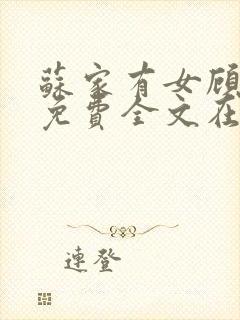 蘇家有女顾
免費全文在
連登